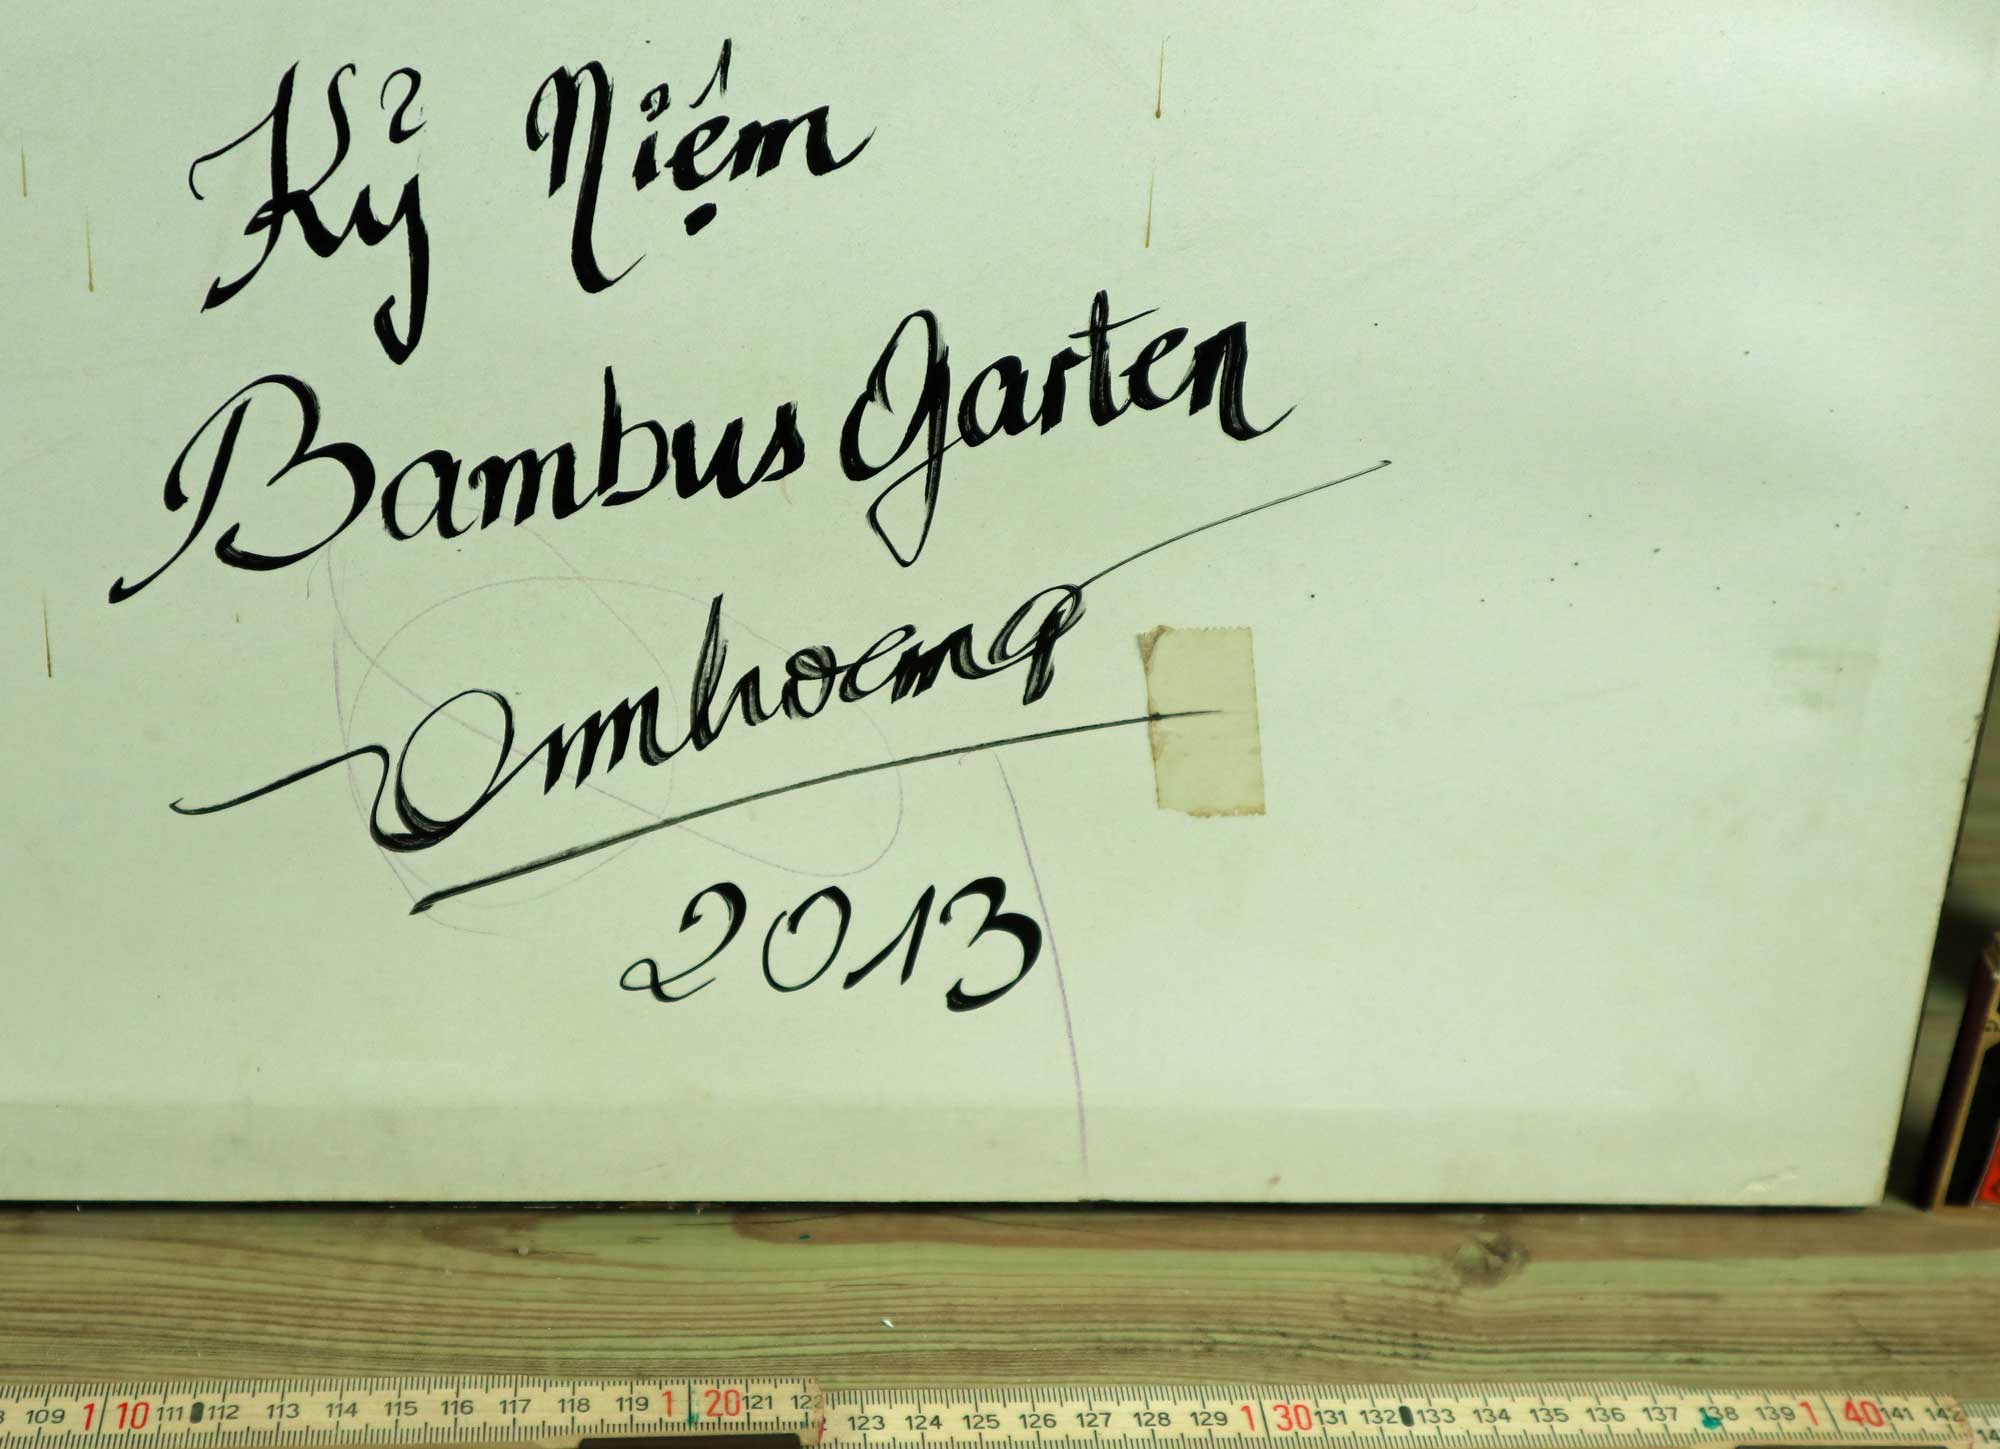 Kỷ Niệm
Bambus Garten
2013
109 1 10 111 112 113 114 115 116 117 118 119 1 20 121 122 123 124 125 126 127 128 129 1 30 131 132 133 134 135 136 137 138 139 1 40 141 142